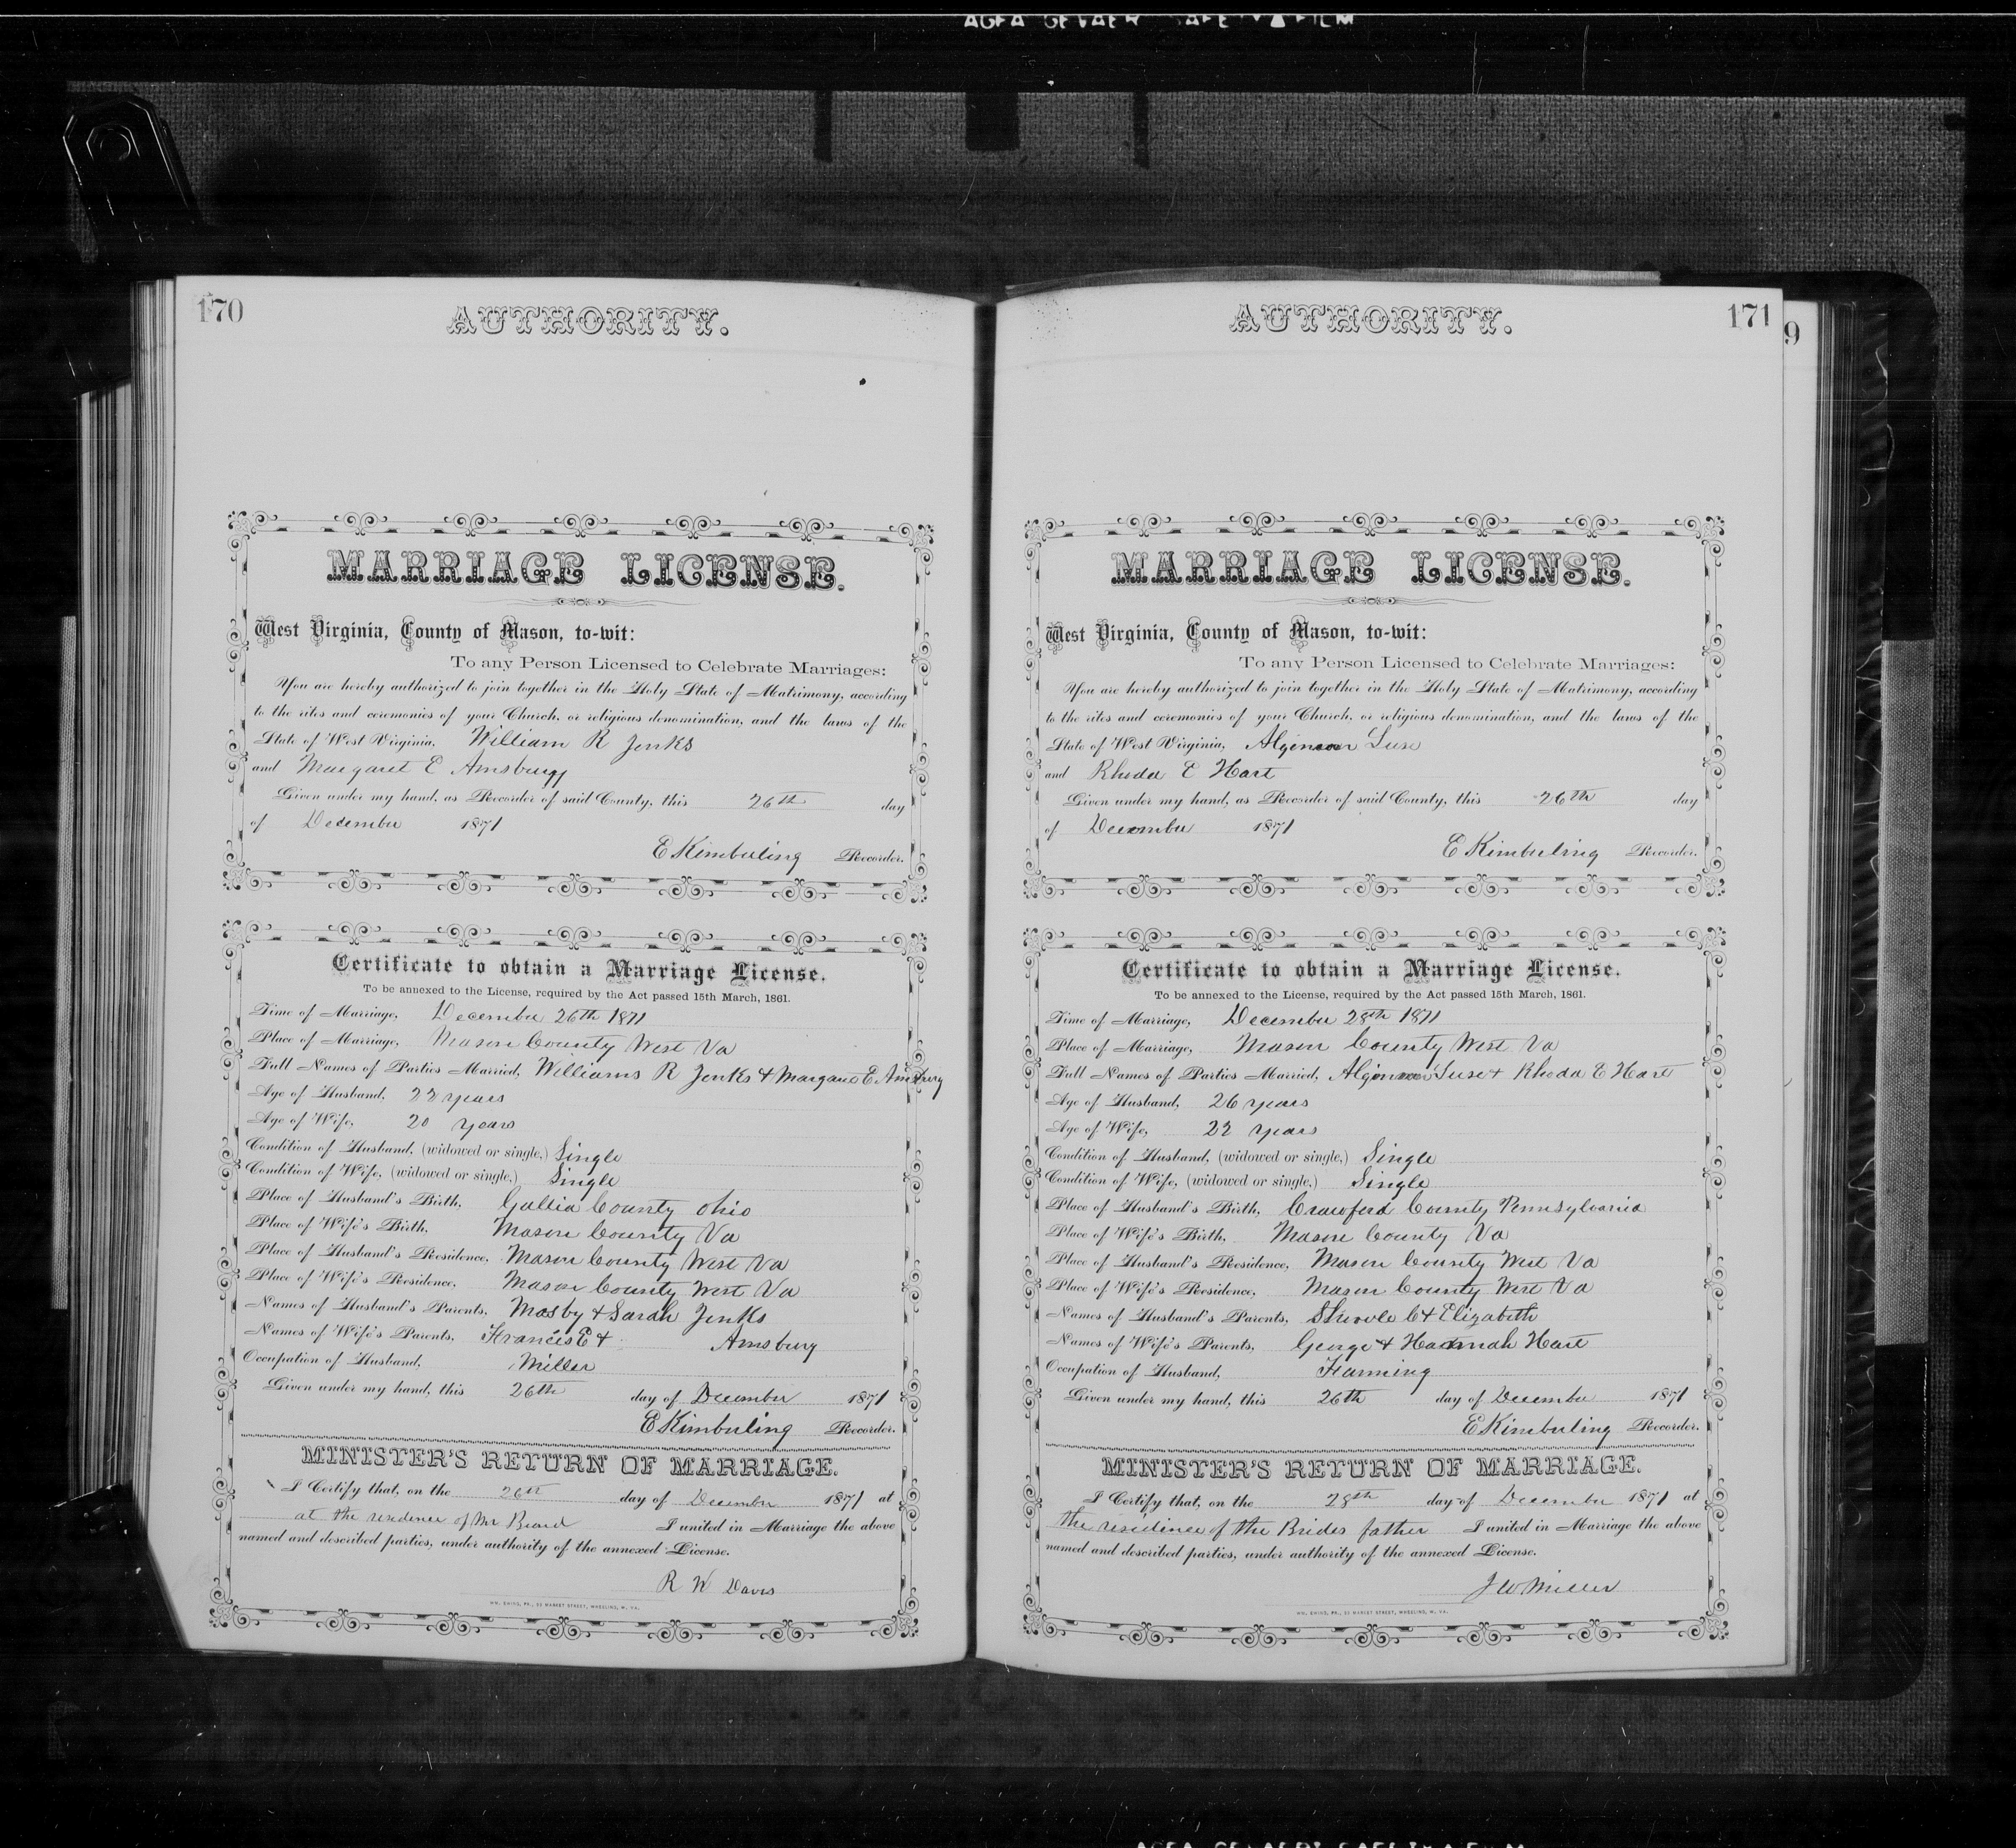 170
AUTHORITY.
MARRIAGE LICENSE.
West Virginia, County of Mason, to-wit:
To any Person Licensed to Celebrate Marriages:
You are hereby authorized to join together in the Holy State of Matrimony, according
to the rites and ceremonies of your Church, or religious denomination, and the laws of the
State of West Virginia, William R Jenks
and Margaret E Amsbury
Given under my hand, as Recorder of said County, this 26th day
of December 1871
E Kimberling Recorder.
Certificate to obtain a Marriage License.
To be annexed to the License, required by the Act passed 15th March, 1861.
Time of Marriage, December 26th 1871
Place of Marriage, Mason County West Va
Full Names of Parties Married, Williams R Jenks & Margaret E Amsbury
Age of Husband, 22 years
Age of Wife, 20 years
Condition of Husband, (widowed or single,) Single
Condition of Wife, (widowed or single,) Single
Place of Husband's Birth, Gallia County Ohio
Place of Wife's Birth, Mason County Va
Place of Husband's Residence, Mason County West Va
Place of Wife's Residence, Mason County West Va
Names of Husband's Parents, Mosby & Sarah Jenks
Names of Wife's Parents, Francis E & Amsbury
Occupation of Husband, Miller
Given under my hand, this 26th day of December 1871
E Kimberling Recorder.
MINISTER'S RETURN OF MARRIAGE.
I Certify that, on the 26th day of December 1871 at
at the residence of Mr Beard I united in Marriage the above
named and described parties, under authority of the annexed License.
R W Davis
WM. EWING, PR., 53 MARKET STREET, WHEELING, W. VA.
171
9
AUTHORITY.
MARRIAGE LICENSE.
West Virginia, County of Mason, to-wit:
To any Person Licensed to Celebrate Marriages:
You are hereby authorized to join together in the Holy State of Matrimony, according
to the rites and ceremonies of your Church, or religious denomination, and the laws of the
State of West Virginia, Luse
and Rhoda E Hart
Given under my hand, as Recorder of said County, this 26th day
of December 1871
E Kimberling Recorder.
Certificate to obtain a Marriage License.
To be annexed to the License, required by the Act passed 15th March, 1861.
Time of Marriage, December 28th 1871
Place of Marriage, Mason County West Va
Full Names of Parties Married, Luse & Rhoda E Hart
Age of Husband, 26 years
Age of Wife, 22 years
Condition of Husband, (widowed or single,) Single
Condition of Wife, (widowed or single,) Single
Place of Husband's Birth, Crawford County Pennsylvania
Place of Wife's Birth, Mason County Va
Place of Husband's Residence, Mason County West Va
Place of Wife's Residence, Mason County West Va
Names of Husband's Parents, C & Elizabeth
Names of Wife's Parents, George & Hannah Hart
Occupation of Husband, Farming
Given under my hand, this 26th day of December 1871
E Kimberling Recorder.
MINISTER'S RETURN OF MARRIAGE.
I Certify that, on the 28th day of December 1871 at
the residence of the Brides father I united in Marriage the above
named and described parties, under authority of the annexed License.
J W Miller
WM. EWING, PR., 53 MARKET STREET, WHEELING, W. VA.